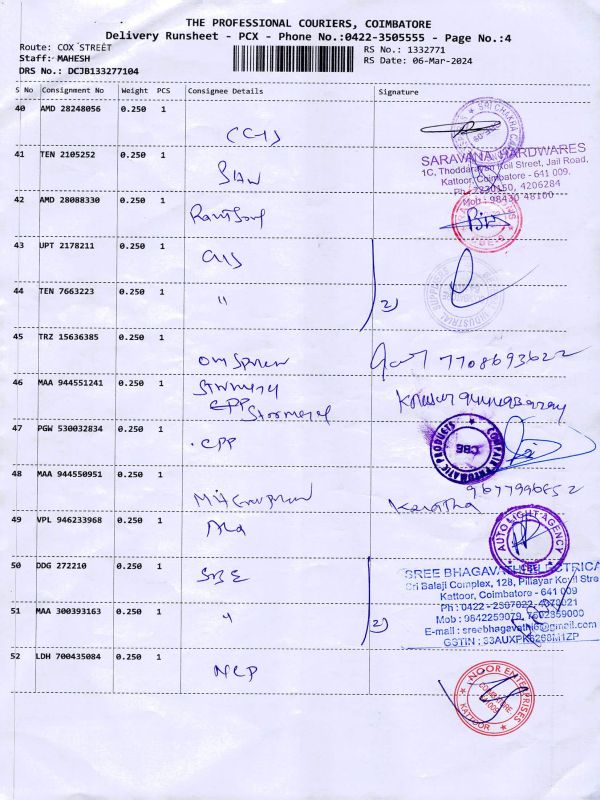 THE PROFESSIONAL COURIERS, COIMBATORE
Delivery Runsheet - PCX - Phone No.:0422-3505555 - Page No.:4
Route: COX STREET
Staff: MAHESH
DRS No.: DCJB133277104
RS No.: 1332771
RS Date: 06-Mar-2024
S No Consignment No Weight PCS Consignee Details Signature
40 AMD 28248056 0.250 1
SRI CHAKRA
41 TEN 2105252 0.250 1
SARAVANA HARDWARES
1C, Thoddarayan Koil Street, Jail Road,
Kattoor, Coimbatore - 641 009.
Ph : 2230150, 4206284
Mob : 98430 48100
42 AMD 28088330 0.250 1
43 UPT 2178211 0.250 1
44 TEN 7663223 0.250 1 "
2)
45 TRZ 15636385 0.250 1
7708693622
46 MAA 944551241 0.250 1
CPP
47 PGW 530032834 0.250 1 CPP
COMPAIR PNEUMATIC PRODUCTS
CBE
48 MAA 944550951 0.250 1
Kavitha 9677996852
49 VPL 946233968 0.250 1 ALA
AUTO LIGHT AGENCY
CBE
50 DDG 272210 0.250 1 SBE
SREE BHAGAVATHI ELECTRICA
Sri Balaji Complex, 128, Pillayar Kovil Stre
Kattoor, Coimbatore - 641 009
Ph : 0422 - 2367022, 4979021
Mob : 9842259079, 7502359000
E-mail : sreebhagavathie@gmail.com
GSTIN : 33AUXPK6268M1ZP
51 MAA 300393163 0.250 1 "
2)
52 LDH 700435084 0.250 1 NCP
NOOR ENTERPRISES
COIMBATORE
641009
KATTOOR